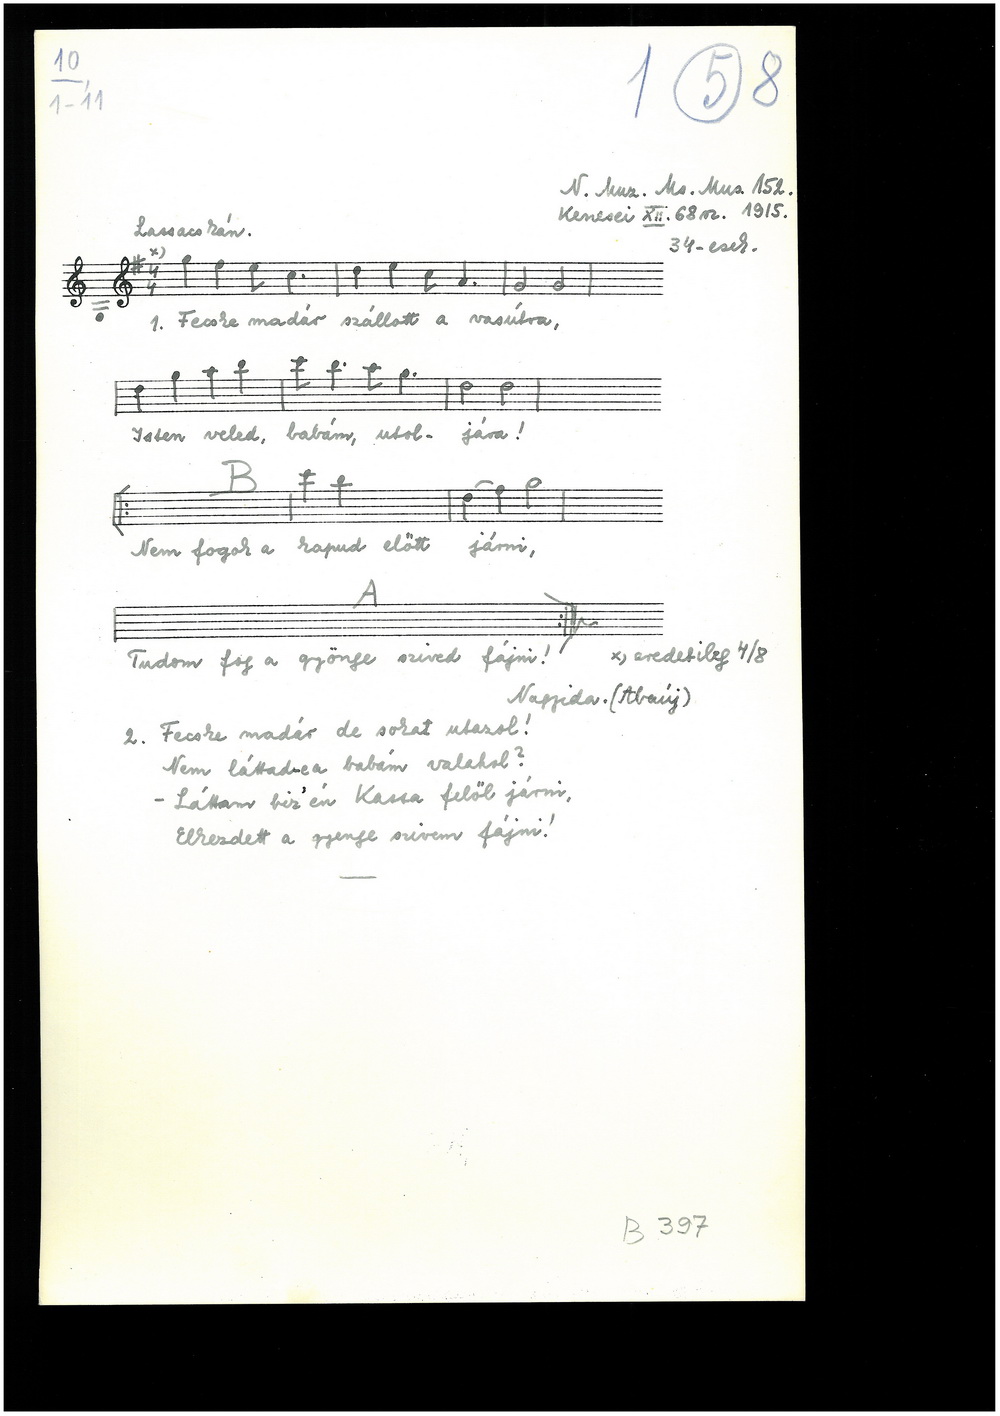 10
1-11
1 5 8
N. Muz. Ms. Mus. 152.
Kenesei XII. 68 sz. 1915.
34-esek.
Lassacskán.
x)
4
4
1. Fecske madár szállott a vasútra,
Isten veled, babám, utol- jára!
B
Nem fogok a kapud előtt járni,
A
Tudom fog a gyönge szived fájni!
x) eredetileg 4/8
Nagyida. (Abaúj)
2. Fecske madár de sokat utazol!
Nem láttad-e a babám valahol?
- Láttam biz'én Kassa felöl járni,
Elkezdett a gyenge szivem fájni!
B 397